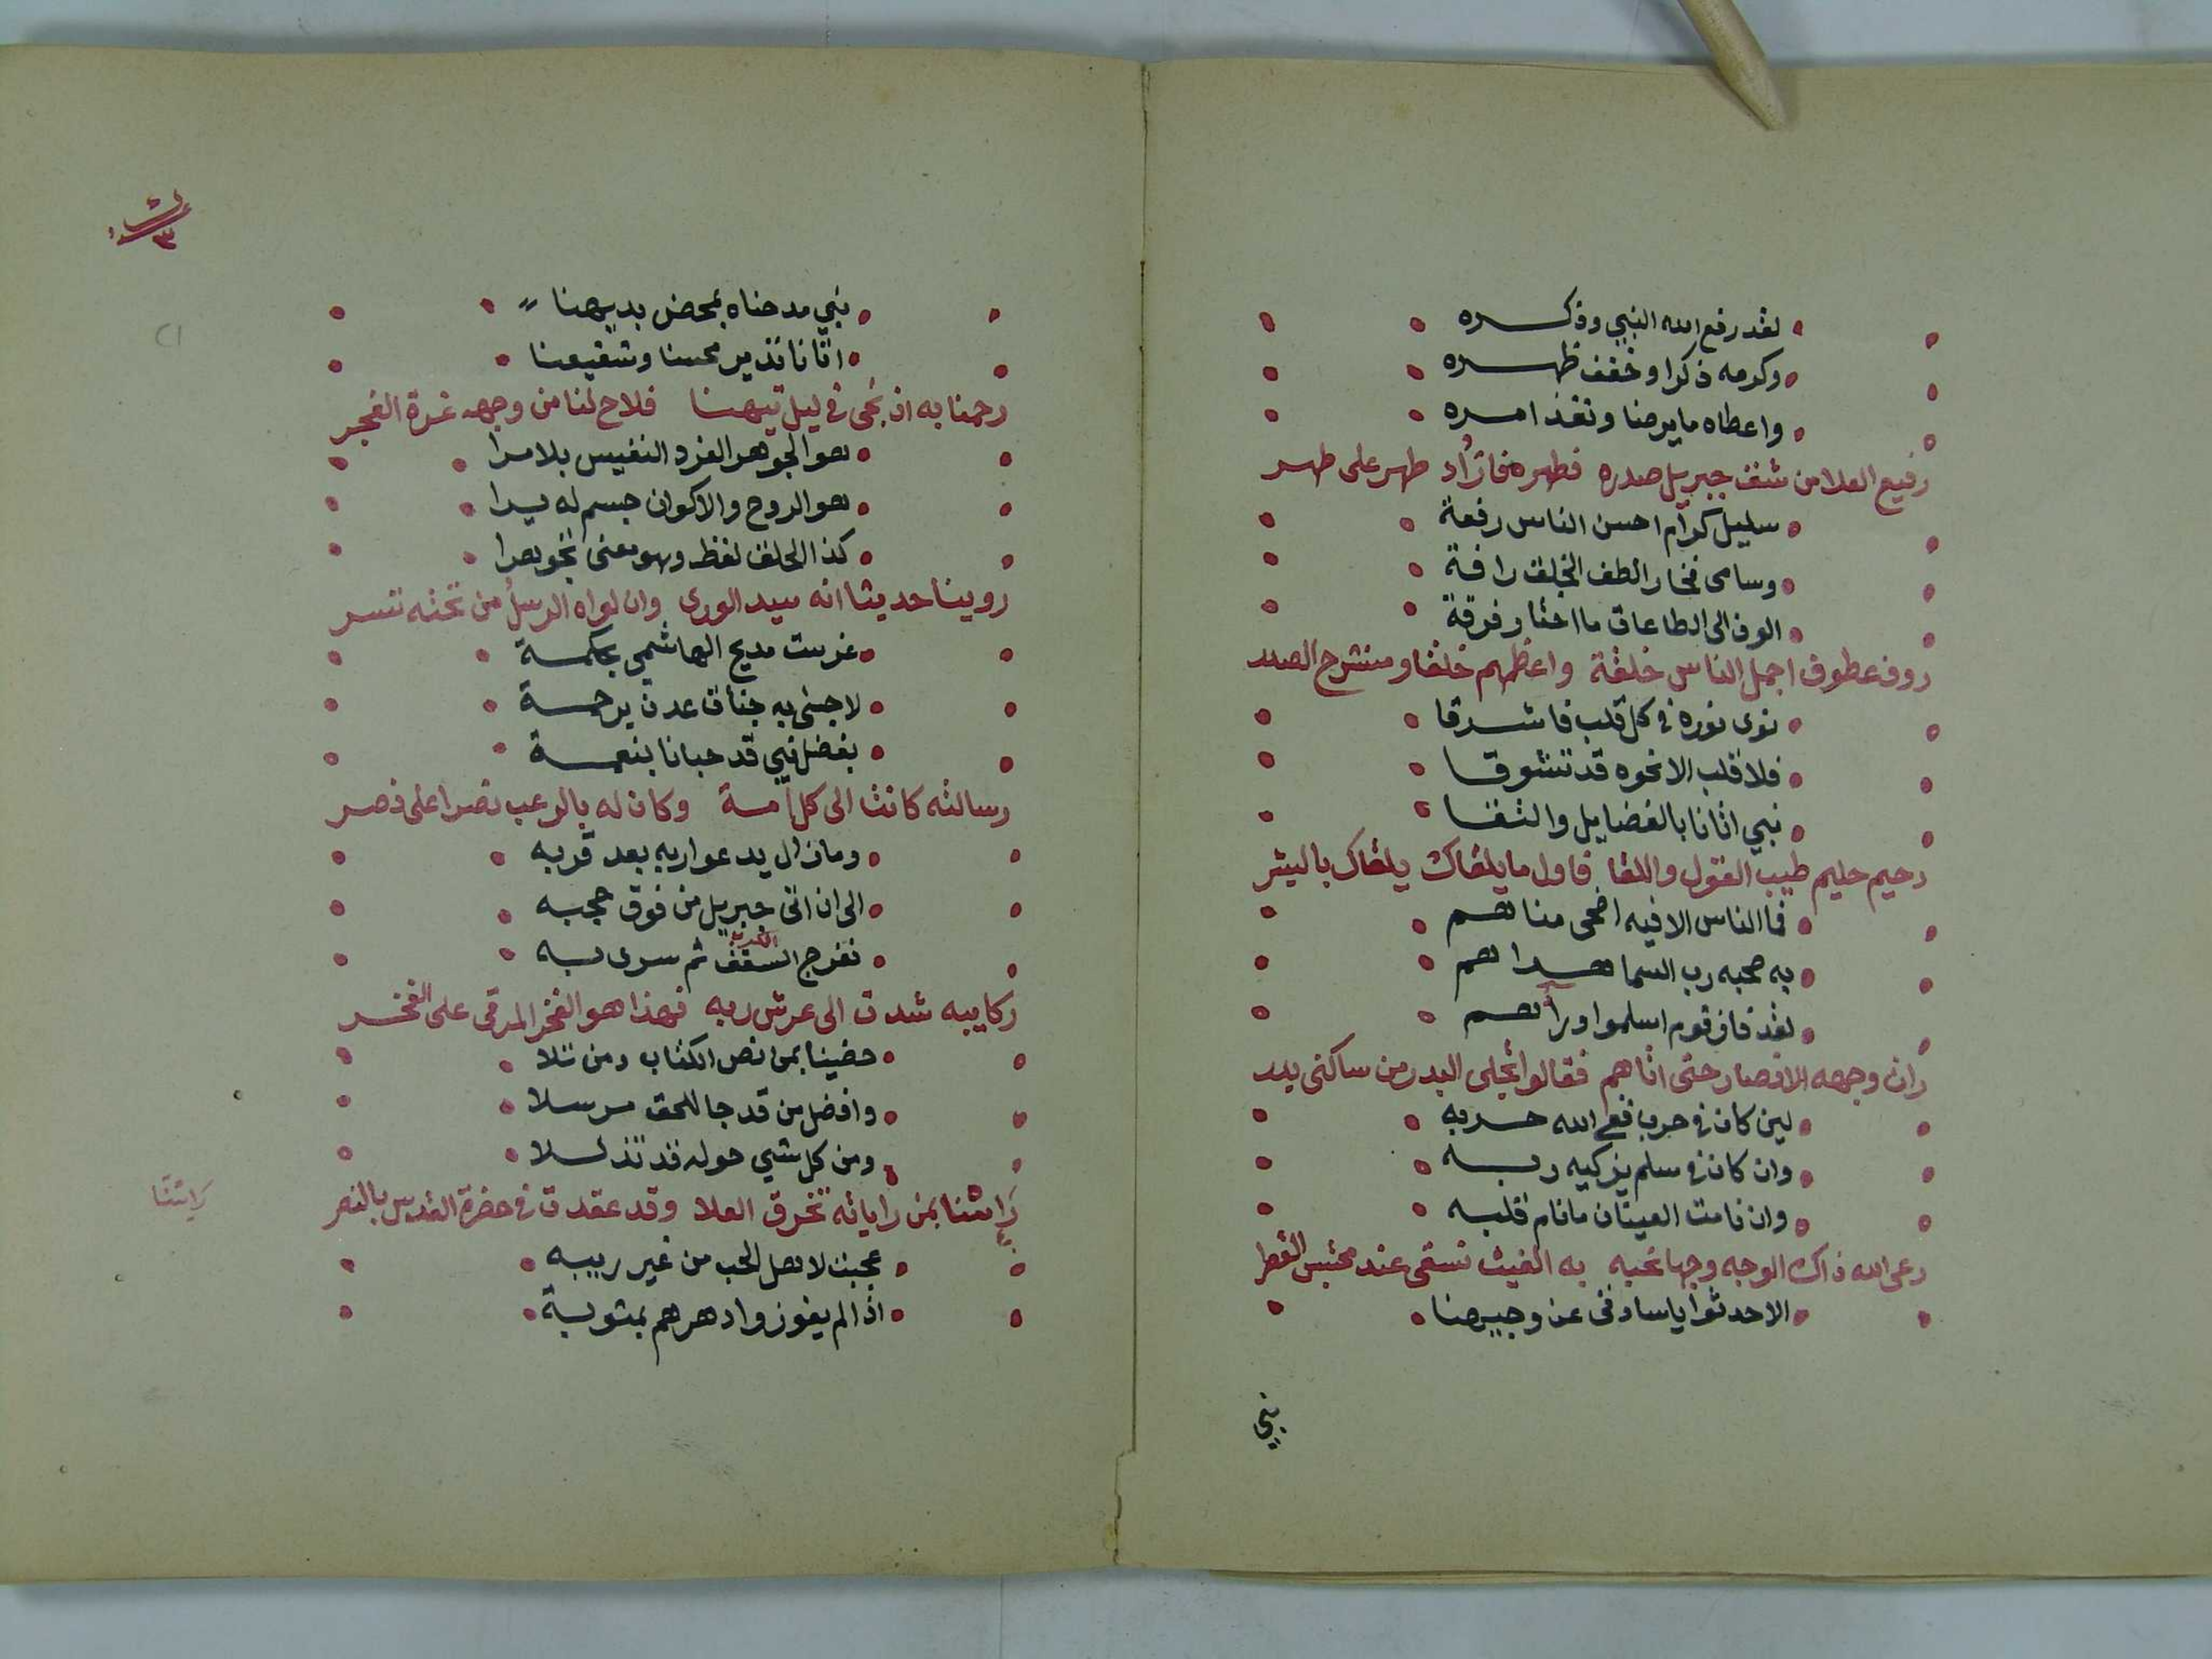 لقد رفع الله النبي وذكره
وكرمه ذكرا وخفف ظهره
واعطاه ما يرضا ونفذ امره
رفيع العلا من شق جبريل صدره فطهره فازداد طهر على طهر
سليل كرام احسن الناس رفعة
وسامى فخار الطف الخلق رافة
الوف الى الطاعات ما اختار فرقة
روف عطوف اجمل الناس خلقة واعظهم خلقا ومنشرح الصدر
نوى نوره في كل قلب فاشرقا
فلا قلب الا نحوه قد تشوقا
نبي اتانا بالفضايل والتقا
رحيم حليم طيب القول واللقا فاول ما يلقاك يلقاك بالبشر
فما الناس الا فيه اضحى مناهم
به صحبه رب السما هداهم
لقد فاز قوم اسلموا وراهم
راى وجهه الانصار حتى اتاهم فقالوا تجلى البدر من ساكنى بدر
لين كان في حرب فمع الله حربه
وان كان في سلم يزكيه ربه
وان نامت العينان ما نام قلبه
رعى الله ذاك الوجه وجها نحبه به الغيث نسقى عند محتبس القطر
الا حدثوا يا سادتى عن وجيهنا
نبي
ش
٣
نبي مدحناه بمحض بديهنا
اتانا نذير محسنا وشفيعنا
رحمنا به اذ نجى في ليل تيهنا فلاح لنا من وجهه غرة الفجر
هو الجوهر الفرد النفيس بلا مرا
هو الروح والاكوان جسم له يرا
كذا الخلق لفظ وهو معنى نحو هرا
روينا حديثا انه سيد الورى وان لواه الرسل من تحته تسر
غرست مديح الهاشمي بحكمة
لاجنى به جنات عدن برحمة
بفضل نبي قد حبانا بنعمة
رسالته كانت الى كل امة وكان له بالرعب نصرا على نصر
وما زال يدعوا ربه بعد قربه
الى ان اتى جبريل من فوق حجبه
نفرج السقف ثم سرى به
ركايبه شدت الى عرش ربه فهذا هو الفخر المرقى على الفخر
حضينا بمن نص الكتاب ومن تلا
وافضل من قد جا للحق مرسلا
ومن كل شي حوله قد تذللا
رايتنا بمن راياته تخرق العلا وقد عقدت في حضرة القدس بالنصر
رايتنا
عجبت لاهل الحب من غير ريبه
اذا لم يفوزوا دهرهم بمثوبة